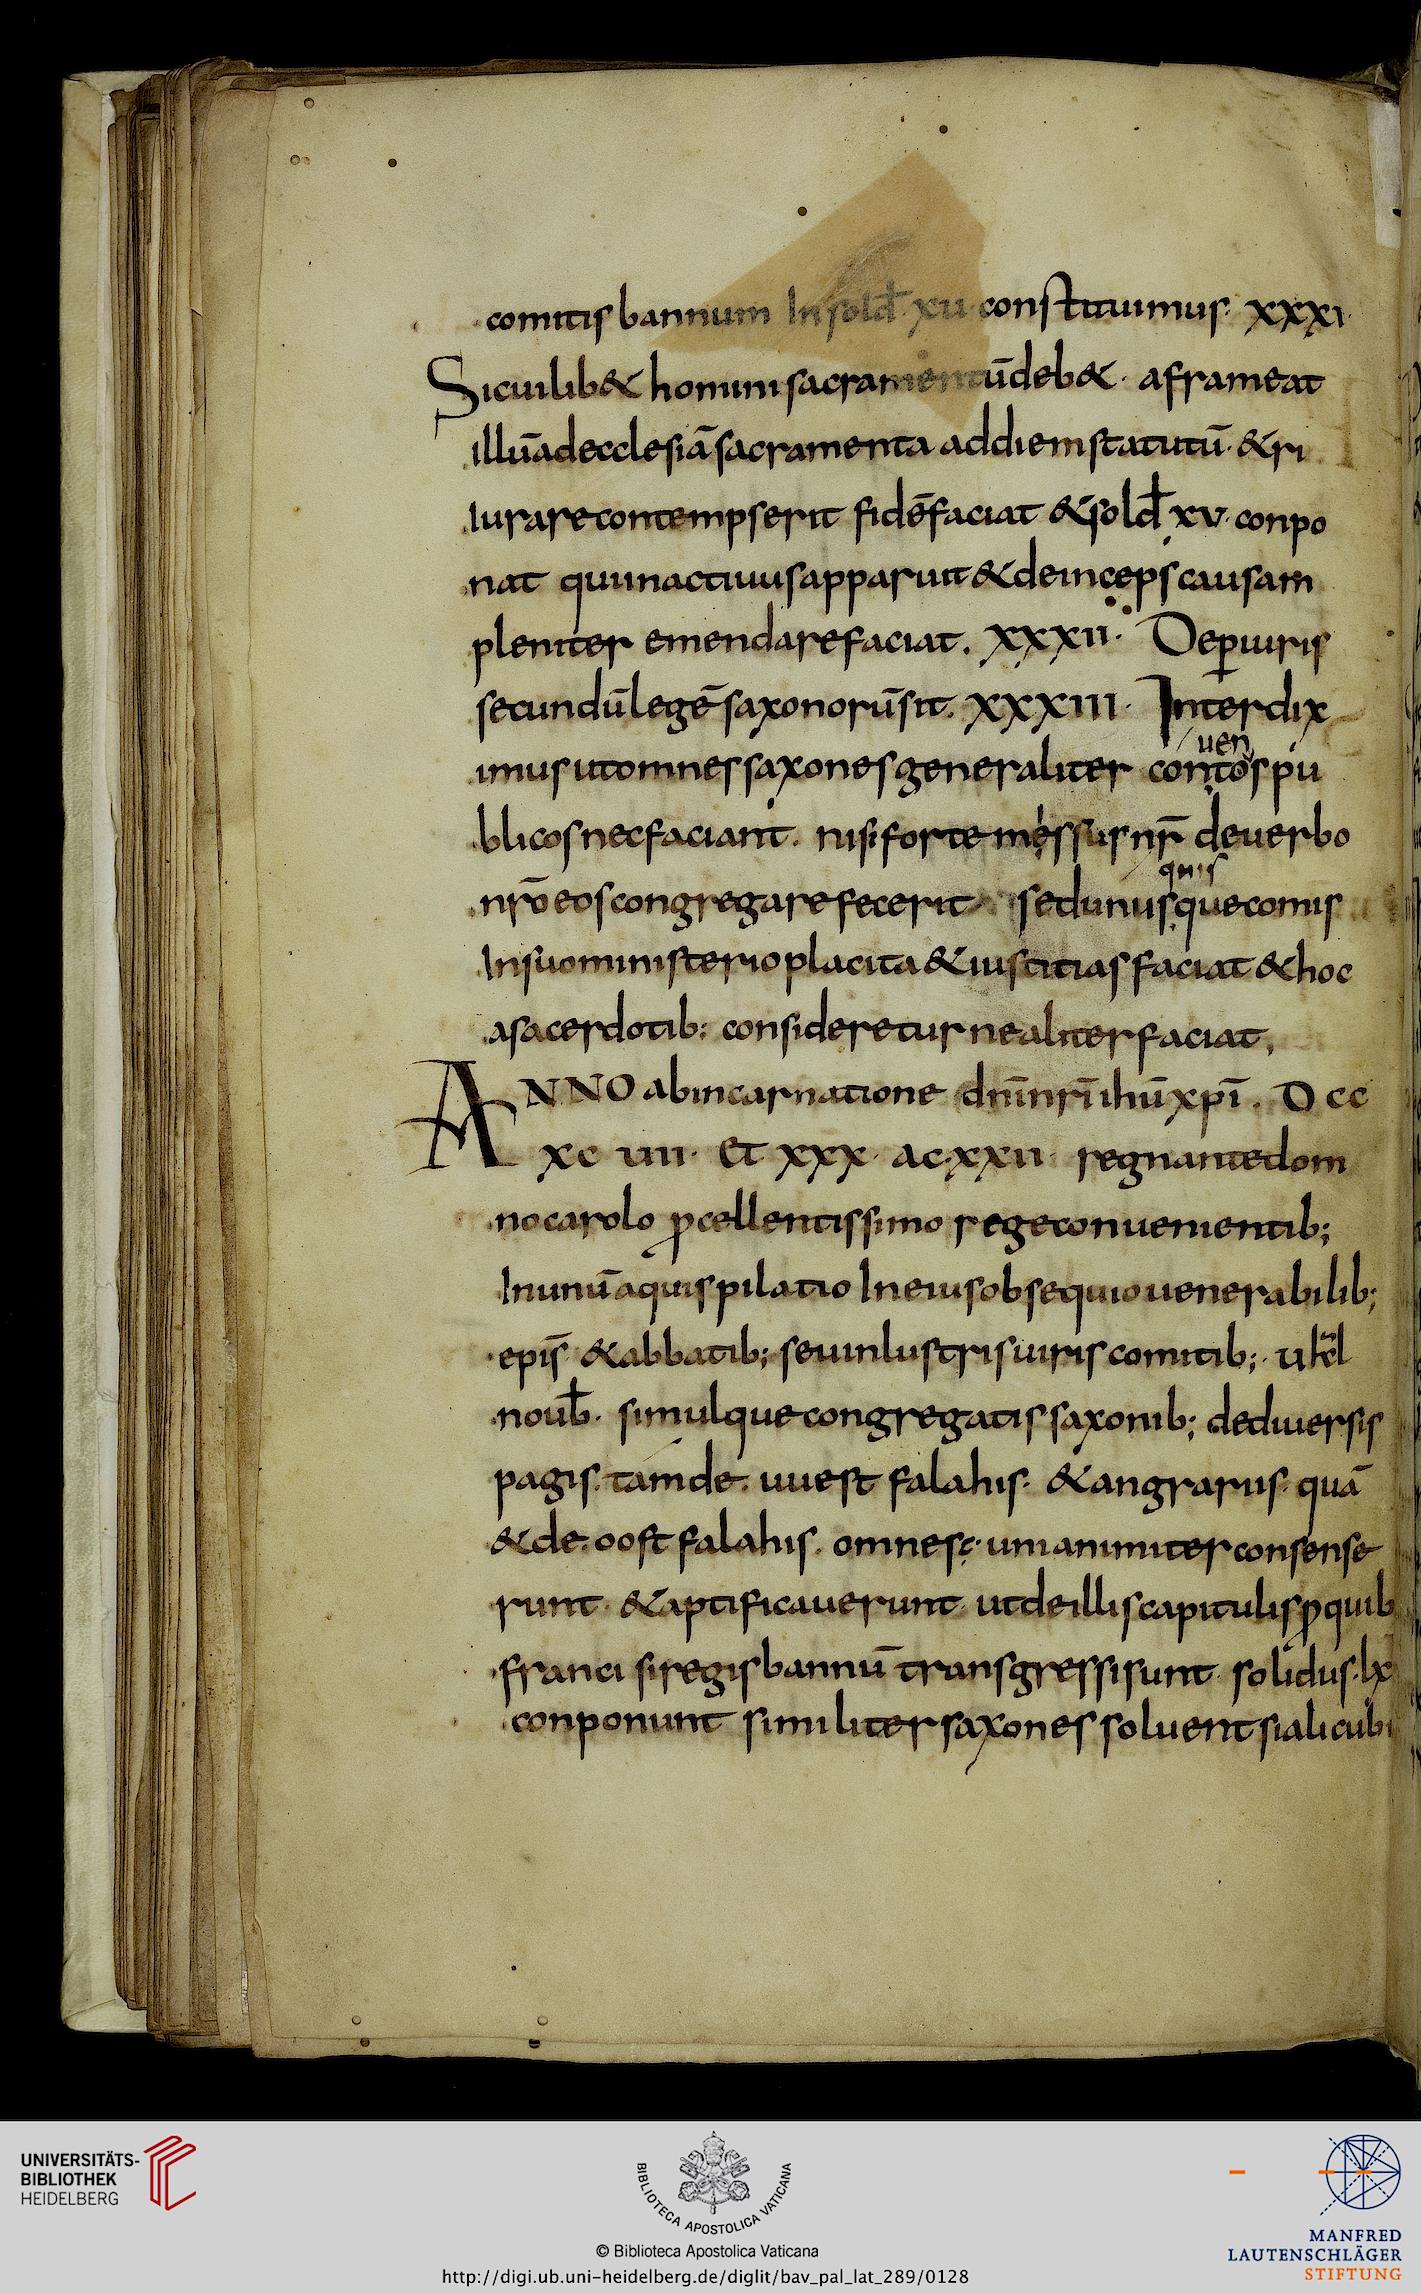 comitis bannum In sold̄ xii constituimus· xxxi·
Sicuilib& homini sacramentū deb& · aframeat
illū ad ecclesiā sacramenta ad diem statutū · & si
Iurare contempserit fidē faciat & sold̄ xv · conpo
nat qui inactiuus apparuit & deinceps causam
pleniter emendare faciat . xxxii · De periuris
secundū legē saxonorū sit . xxxiii · Interdix
uen
imus ut omnes saxones generaliter contos pu
blicos nec faciant . nisi forte messus nr̄ de uerbo
quis
nrō eos congregare fecerit sed unusque comis
In suo ministerio placita & iustitias faciat & hoc
a sacerdotib: consideretur ne aliter faciat,
ANNO ab incarnatione dnī nrī ihū xpī . D cc
xc uii · et xxx · ac · xxii · regnante dom
no carolo p̱cellentissimo rege conuenientib;
In unū aquis pilatio In eius obsequio uenerabilib;
epīs & abbatib; seu inlustris uiris comitib; · u kl̄
nouƀ · simulque congregatis saxonib; de diuersis
pagis . tam de . uuest falahis · & angrariis · quā
& de . oost falahis . omnes unianimiter consense
runt · & aptificauerunt · ut de illis capitulis ꝓ quib
franci si regis bannū transgressi sunt · solidus · lx
conponunt similiter saxones soluent si alicubi
UNIVERSITÄTS-
BIBLIOTHEK
HEIDELBERG
BIBLIOTECA APOSTOLICA VATICANA
© Biblioteca Apostolica Vaticana
http://digi.ub.uni-heidelberg.de/diglit/bav_pal_lat_289/0128
MANFRED
LAUTENSCHLÄGER
STIFTUNG